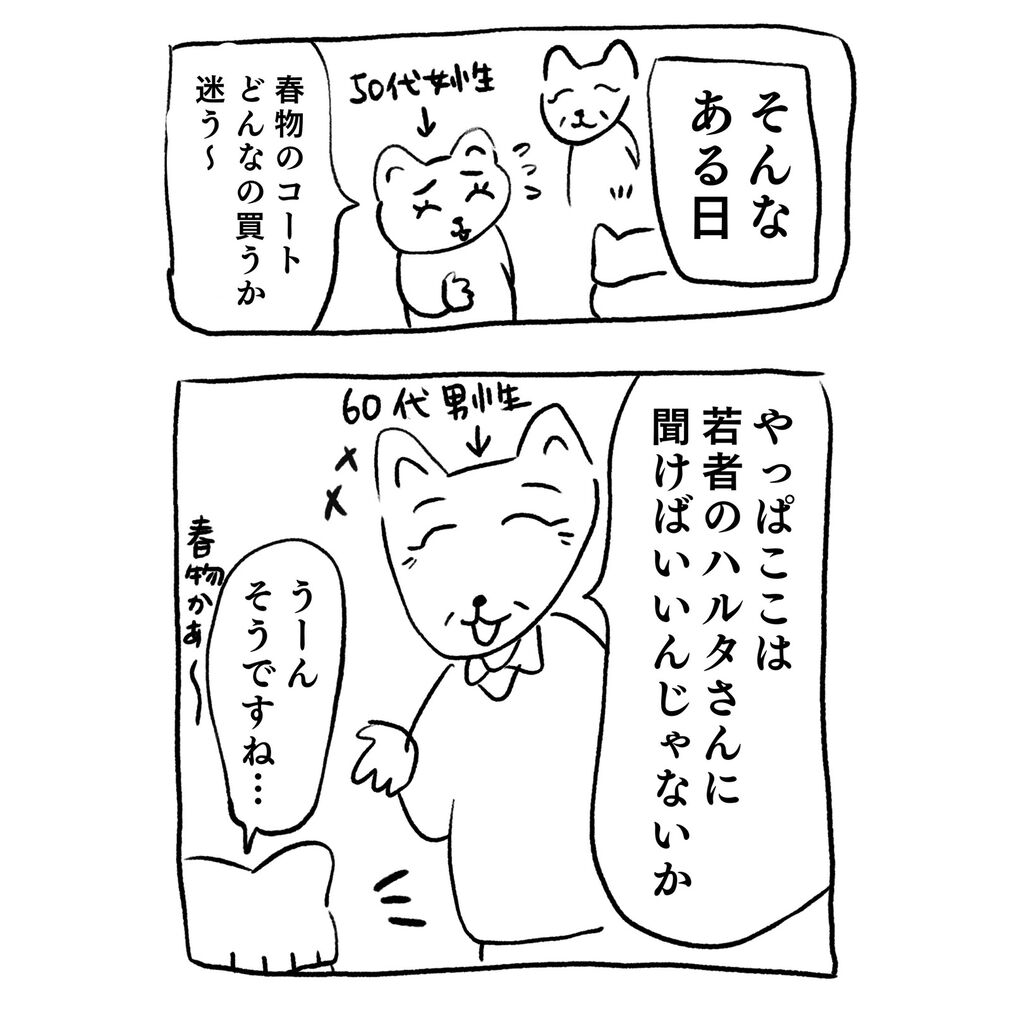 そんな
ある日
50代女性
春物のコート
どんなの買うか
迷う～
60代男性
やっぱここは
若者のハルタさんに
聞けばいいんじゃないか
うーん
そうですね…
春物かぁ～